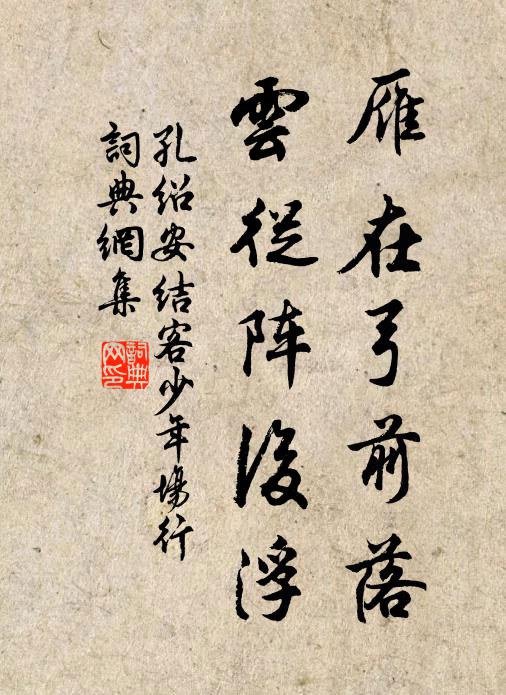 雁在弓前落
雲從阵後浮
孔绍安结客少年場行
詞典網集
詞典网印